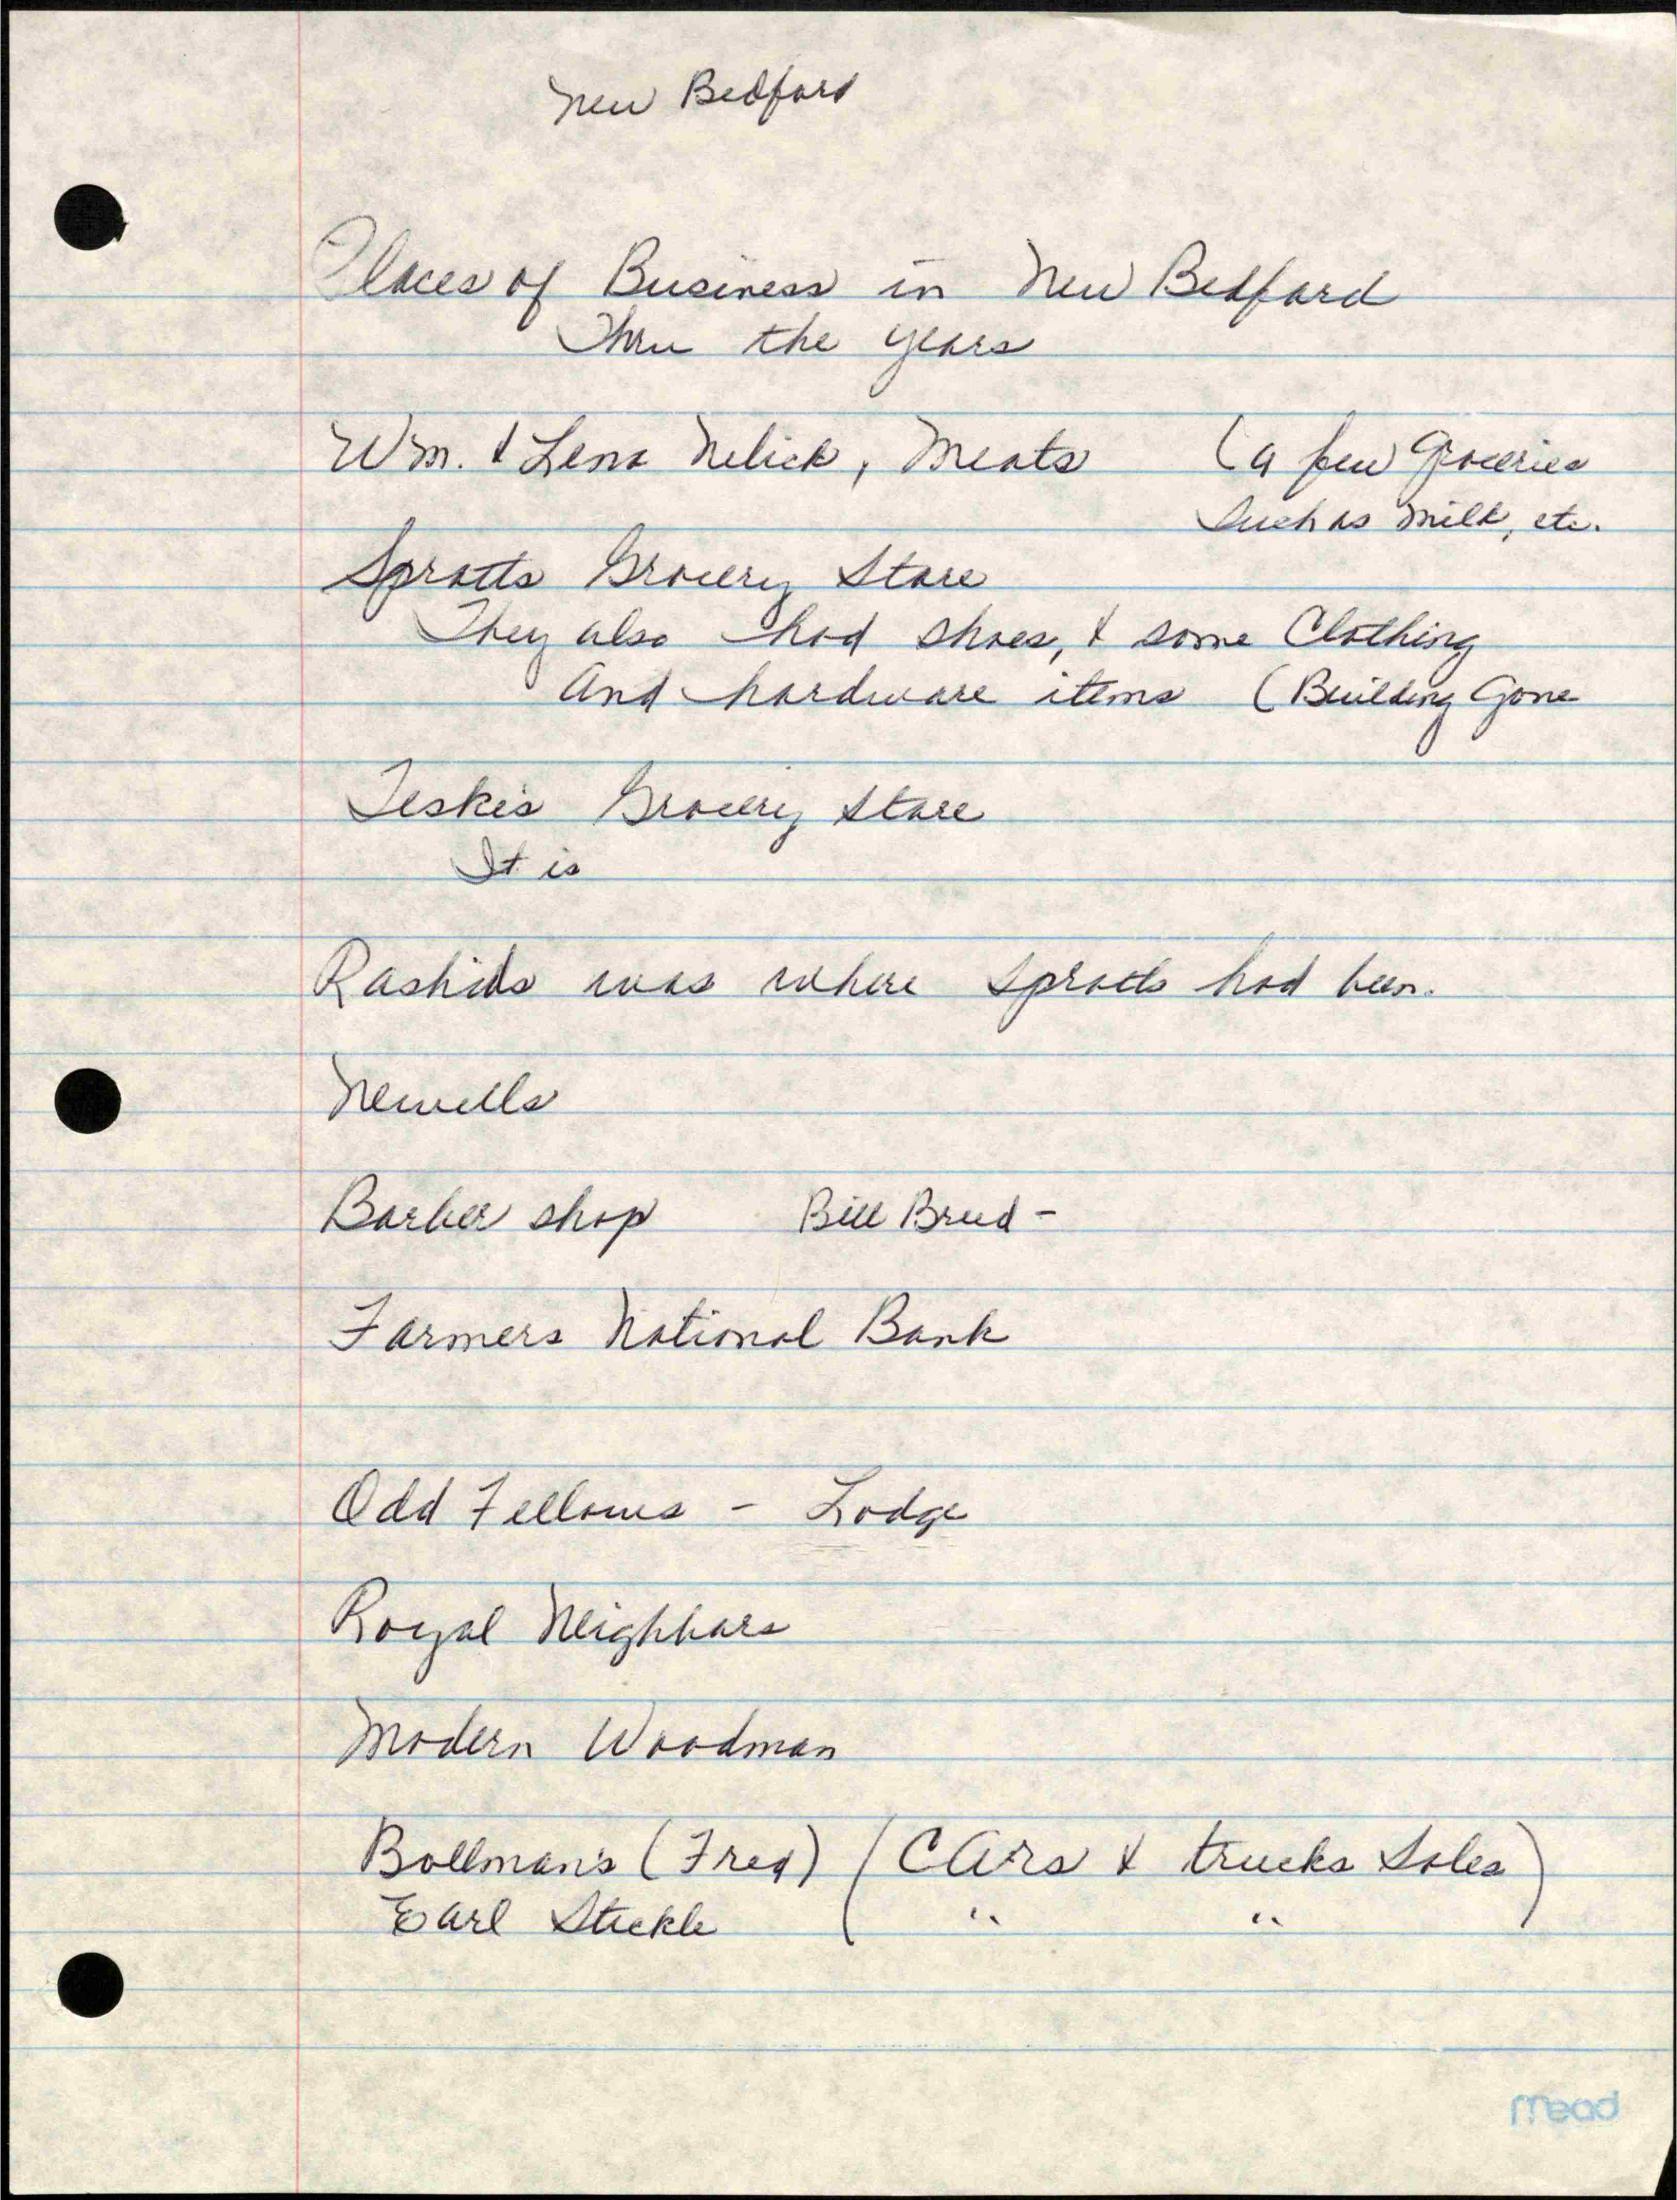 New Bedford
Places of Business in New Bedford
Thru the years
Wm. & Lena Nelick, Meats (a few Groceries
Such as milk, etc.
Spratts Grocery Store
They also had shoes, & some Clothing
And hardware items (Building Gone
Teskes Grocery Store
It is
Rashids was where Spratts had been.
Newells
Barber shop Bill Breed -
Farmers National Bank
Odd Fellows - Lodge
Royal Neighbors
Modern Woodman
Bollman's (Fred) (CArs & trucks Sales)
Earl Stickle " "
mead